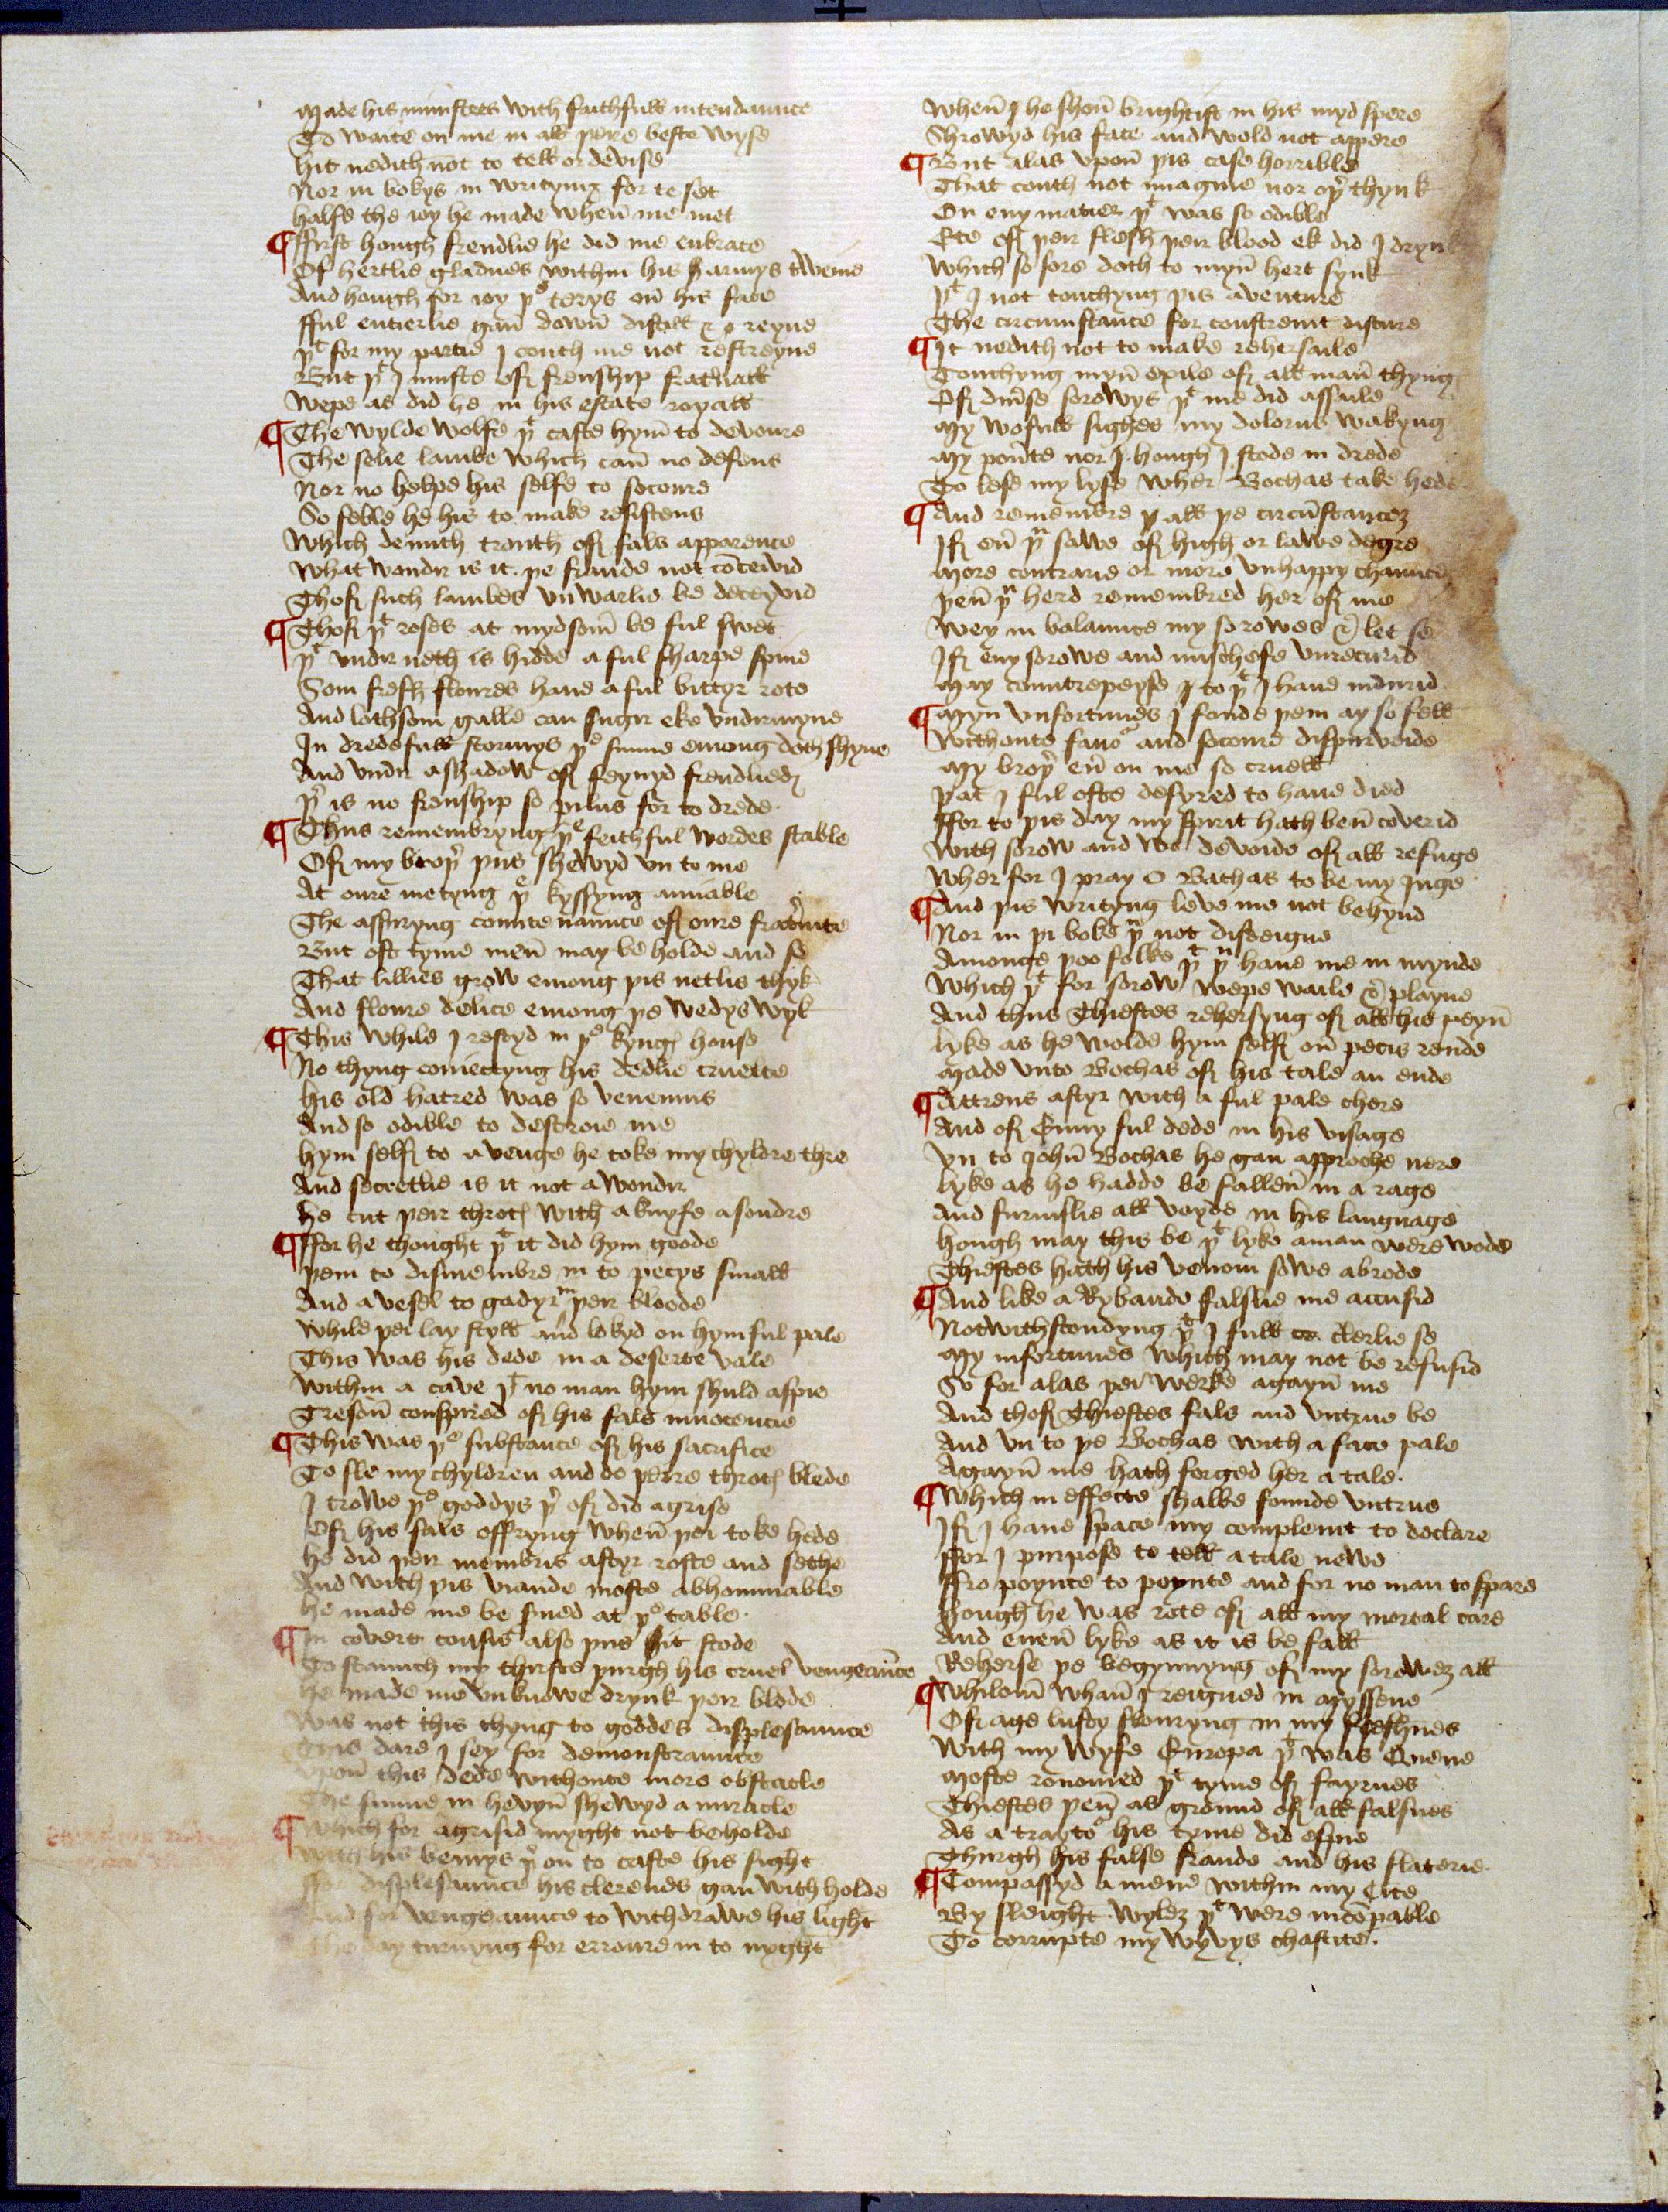 Made his ministres with faithfull intendaunce
To waite on me in all þere beste wyse
Hit nedith not to tell or devise
Nor in bokys in writyng for te set
Halfe the ioy he made when̄ we met
¶ ffirst hough frendlie he did me enbrace
Of hertlie gladnes within his harmys tweine
And hough for ioy þe terys on̄ his face
fful entierlie gan̄ down̄ distill & reyne
þt for my partie I couth me not restreyne
But þt I muste of frenship fraternall
Wepe as did he in his estate royall
¶ The wylde wolfe þt caste hym̄ to devoure
The selie lambe which can̄ no defens
Nor no helpe his selfe to socoure
So feble he his to make resistens
Which demith trouth of fals apparence
What wondir is it þe fraude not cōceivid
Thof such lambes vnwarlie be deceyvid
¶ Thof þt roses at mydsom̄ be ful swet
þt vndir neth is hidde a ful sharpe spine
Som fresh floures haue a ful bittyr rote
And lothsom galle can sugir eke vndirmyne
In dredefull stormys þe sunne emong doth shyne
And vndir a shadow of feynyd frendlied
þr is no frenship so pilus for to drede
¶ Thus remembryng þe feithful wordes stable
Of my broþr þus shewyd vn to me
At oure metyng þe kyssyng amiable
The assuryng countenaunce of oure frat̄nite
But oft tyme men̄ may be holde and se
That lillies grow emong þis netlis thyk
And floure delice emong þe wedys wyk
¶ This while I restyd in þe kyng house
No thyng coniectyng his dedlie cruelte
His old hatred was so venemus
And so odible to destroie me
Hym self to avenge he toke my chyldre thre
And secretlie is it not a wondir
He cut þeir throt with a knyfe a sondre
¶ ffor he thought þt it did hym goode
þem to dismembre in to pecys small
And a vesel to gadyr in þeir bloode
While þei lay styll and lokyd on hym ful pale
This was his dede in a deserte vale
Within a cave þt no man hym shuld aspie
Treson̄ conspired of his fals innocencie
¶ This was þe substance of his sacrifice
To sle my chyldren and do þeire throt blede
I trowe þe goddys þr of did agrise
Of his fals offryng when̄ þei toke hede
He did þeir membris aftyr roste and sethe
And with þis viande moste abhominable
He made me be serued at þe table
¶ In covert cousis also þus hit stode
To staunch my thirste þurgh his cruel vengeaūce
He made me vnknowe drynk þeir blode
Was not this thyng to goddes displesaunce
This dare I sey for demonstraunce
Vpon̄ this dede withoute more obstacle
The sunne in hevyn̄ shewyd a miracle
¶ Which for agrisid myght not beholde
With his bemys þr on to caste his sight
ffor displesaunce his clerenes gan with holde
And for vengeaunce to withdrawe his light
The day turnyng for erroure in to nyght
When̄ þt he shon̄ brightist in his myd spere
Shrowyd his face and wold not appere
¶ But alas vpon̄ þis case horrible
That couth not imagine nor oþr thynk
On eny matier þt was so odible
Ete of þeir flesh þeir blood ek did I drynk
Which so sore doth to myn̄ hert synk
þt I not touchyng þis aventure
The circumstance for constreint discure
¶ It nedith not to make rehersaile
Touchyng myn̄ exile of all man̄ thyng
Of diu̅se sorowys þt me did assaile
My wofull sighes my dolorus wakyng
My pou̅te nor hough I stode in drede
To lese my lyfe wher Bochas take hede
¶ And remembre all þe circūstancez
If eū þu sawe of high or lawe degre
More contrarie or more vnhappy chaunces
þen̄ þu herd remembred her of me
Wey in balaunce my sorowes & let se
If eny sorowe and mischefe vnrecurid
May countrepeyse to þt I haue indurid
¶ Myn vnfortunes I fonde þem ay so fell
Withoute fauor and socoure dispurveide
My broþr eū on me so cruell
þat I ful ofte desyred to haue died
ffor to þis day my spirit hath ben̄ coverid
With sorow and wo devoide of all refuge
Wher for I pray O Bochas to be my Juge
¶ And þis writyng leve me not behynd
Nor in þi boke þu not disdeigne
Amonge poo folke þt þu haue me in mynde
Which þt for sorow wepe waile & playne
And thus Thiestes rehersyng of all his peyn̄
Lyke as he wolde hym self on̄ pecis rende
Made vnto Bochas of his tale an ende
¶ Attreus aftyr with a ful pale chere
And of Enuy ful dede in his visage
Vn to John̄ Bochas he gan approche nere
Lyke as he hadde be fallen̄ in a rage
And furiuslie all voyde in his language
Hough may this be þt lyke a man were wode
Thiestes hath his venom sowe abrode
¶ And like a Rybaude falslie me accusid
Notwithstondyng þt I full clerlie se
My infortunes which may not be refusid
So for alas þei werke agayn̄ me
And thof Thiestes fals and vntrue be
And vn to þe Bochas with a face pale
Agayn̄ me hath forged her a tale.
¶ Which in effecte shalbe founde vntrue
If I haue space my compleint to declare
ffor I purpose to tell a tale newe
ffro poynte to poynte and for no man to spare
Hough he was rote of all my mortal care
And euen̄ lyke as it is be fall
Reherse þe begynnyng of my sorowez all
¶ Whilom̄ whan̄ I reigned in Myssene
Of age lusty flouryng in my freshnes
With my wyfe Europa þt was Quene
Moste renomed þt tyme of fayrnes
Thiestes þen̄ as ground of all falsnes
As a traytor his tyme did espie
Thurgh his false fraude and his flaterie
¶ Compassyd a mene within my Cite
By sleight wylez þt were incōpable
To corrupte my wyvys chastite.